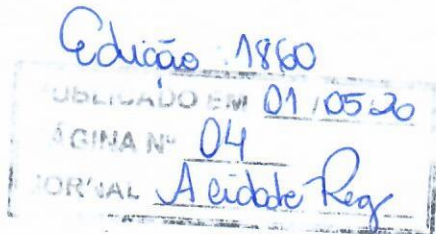 Edição 1860
PUBLICADO EM 01/05/20
PÁGINA Nº 04
JORNAL A cidade Reg